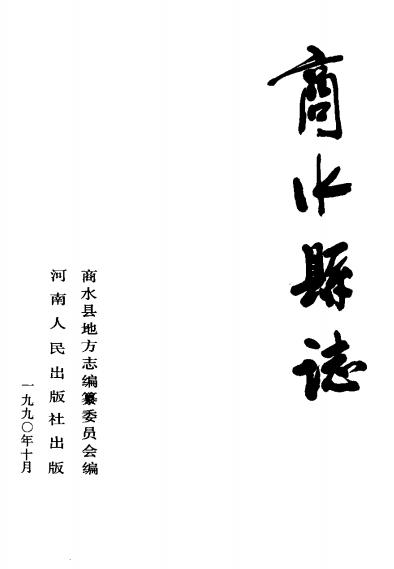 商水縣誌
商水县地方志编纂委员会编
河南人民出版社出版
一九九〇年十月